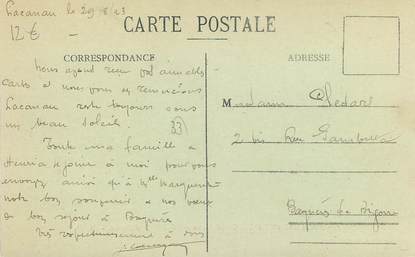 Lacanau le 29 8 23
12 €
CARTE POSTALE
CORRESPONDANCE
ADRESSE
Nous avons reçu vos aimables
cartes et nous vous en remercions
Lacanau reste toujours sous
un beau soleil.
33
Toute ma famille
Henri se joint à moi pour vous
envoyer ainsi qu'à Mlle Marguerite
notre bon souvenir et nos vœux
de bon séjour à Bagnères
Très respectueusement à vous
Madame
2 bis Rue Gambetta
Bagnères de Bigorre